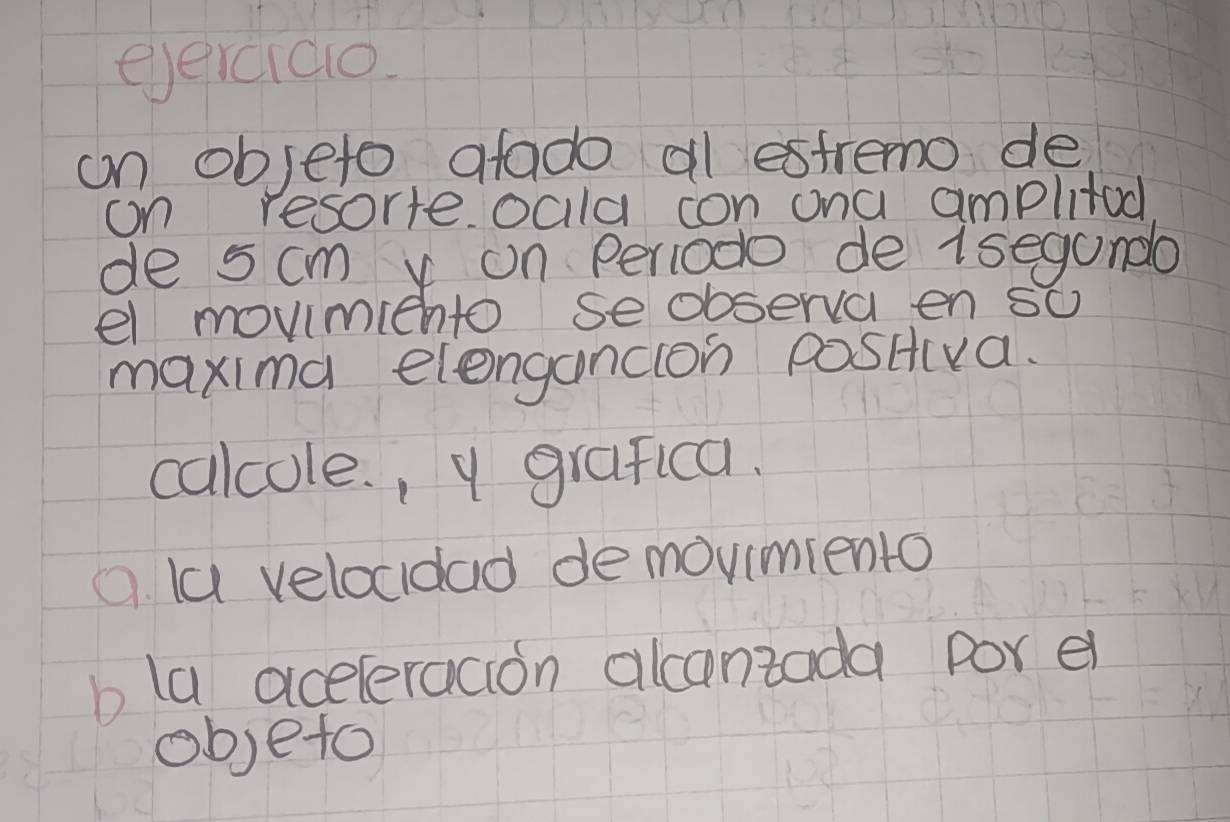 ejercicio.
un objeto atado al estremo de
un resorte. ocila con una amplitud
de 5 cm y un Periodo de 1segundo
el movimiento se observa en su
maxima elongancion positiva.
calcule., y grafica.
a. la velocidad de movimiento
b la aceleración alcanzada por el
objeto